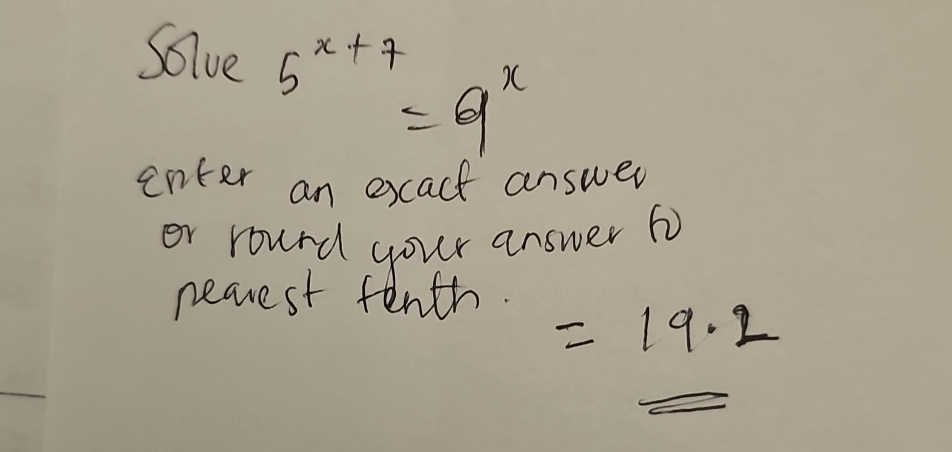 Solve 5^{x+7}
= 9^x
Enter an exact answer
or round your answer to
nearest tenth.
= 19.2